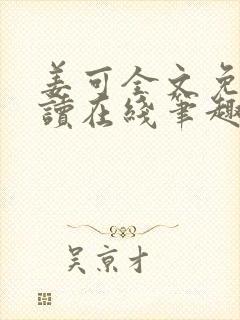 姜可全文免
讀在綫筆趣
吴京才